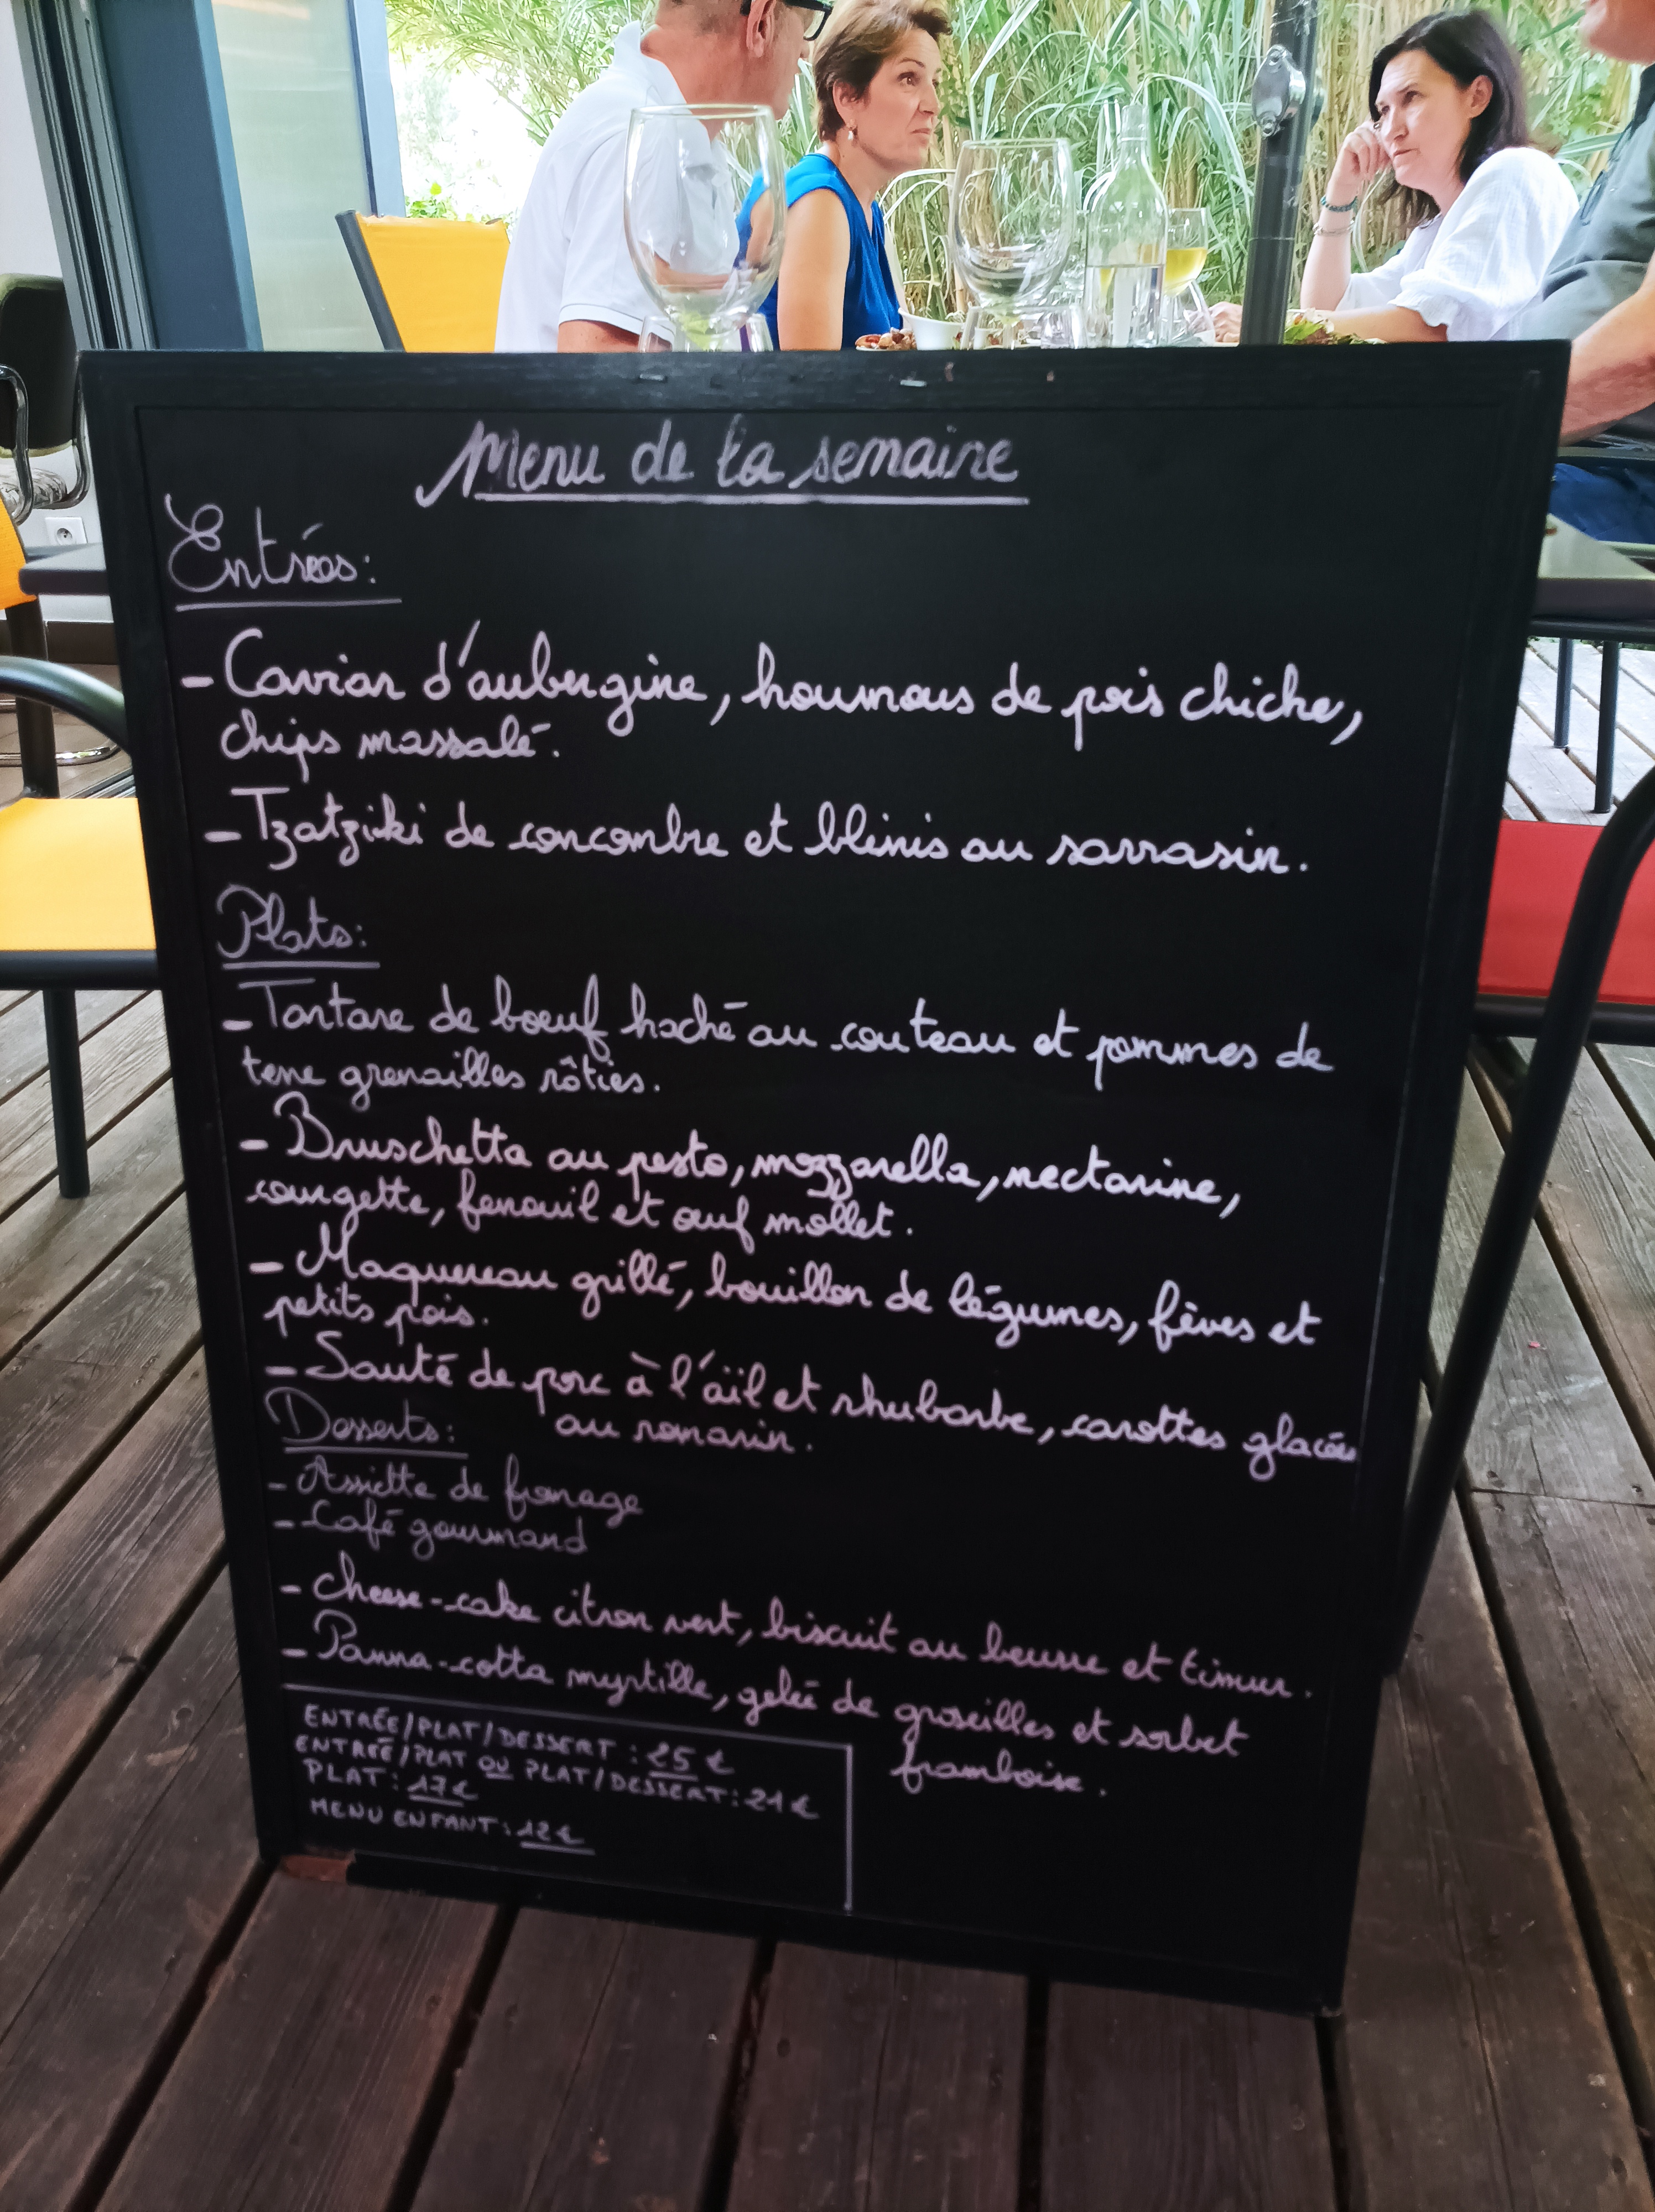 Menu de la semaine
Entrées:
- Caviar d'aubergine, houmous de pois chiche,
chips massalé.
- Tzatziki de concombre et blinis au sarrasin.
Plats:
- Tartare de boeuf haché au couteau et pommes de
terre grenailles rôties.
- Bruschetta au pesto, mozzarella, nectarine,
courgette, fenouil et œuf mollet.
- Maquereau grillé, bouillon de légumes, fèves et
petits pois.
- Sauté de porc à l'aïl et rhubarbe, carottes glacées
au romarin.
Desserts:
- Assiette de fromage
- Café gourmand
- Cheese-cake citron vert, biscuit au beurre et timur.
- Panna-cotta myrtille, gelée de groseilles et sorbet
framboise.
ENTRÉE/PLAT/DESSERT : 25 €
ENTREÉ/PLAT OU PLAT/DESSERT: 21 €
PLAT: 17€
MENU ENFANT: 12€